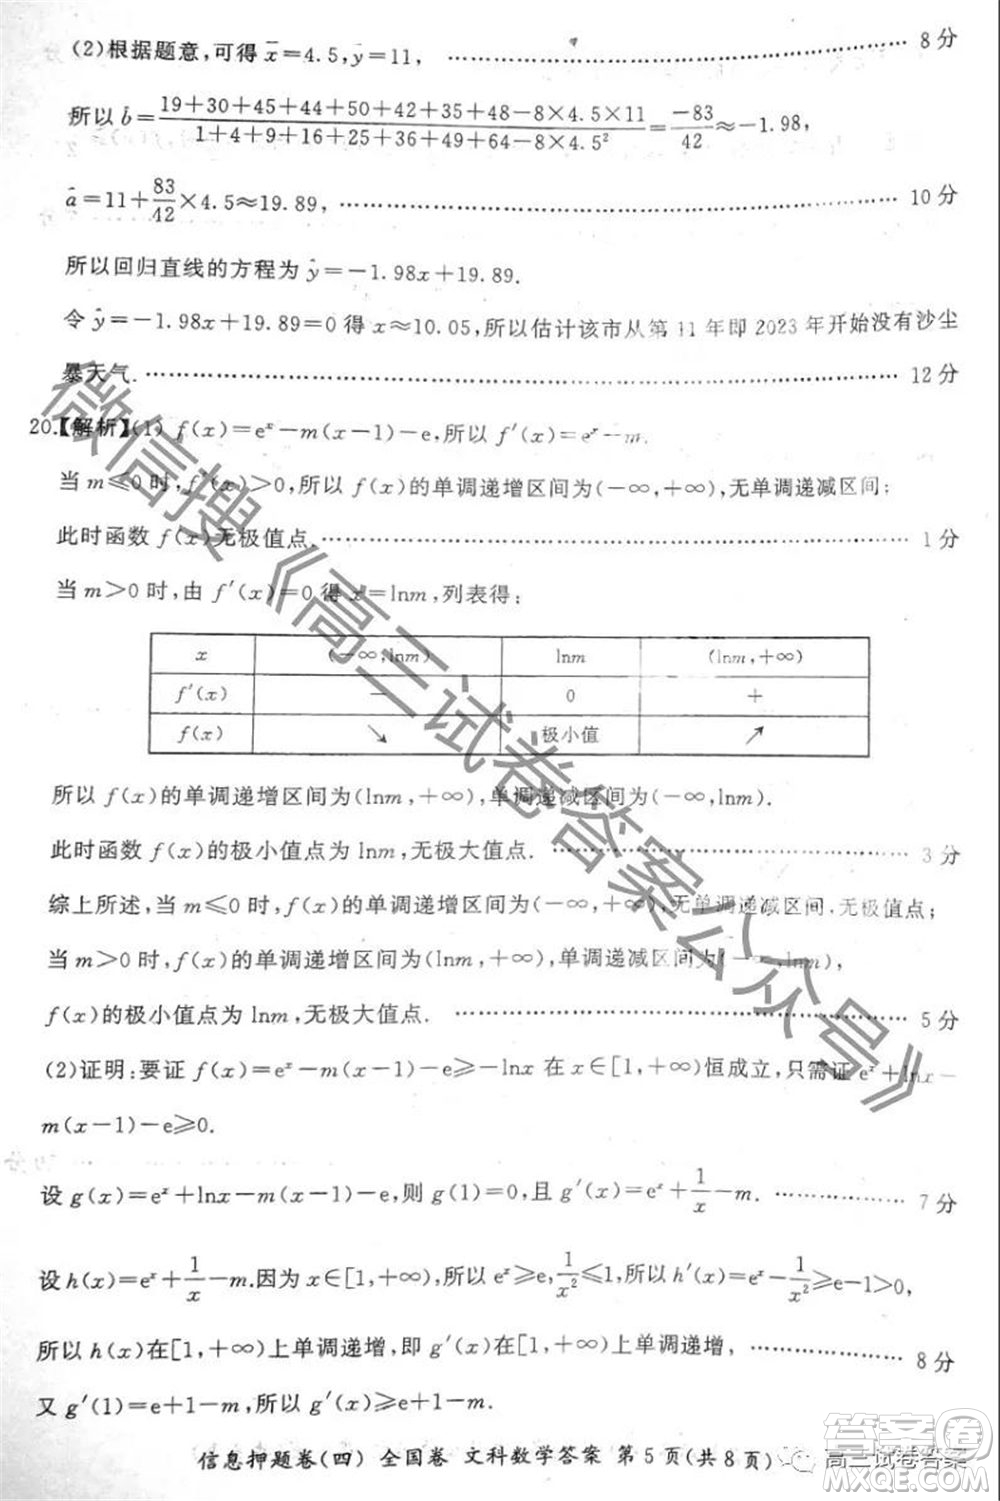 (2)根据题意,可得 x̄=4.5,ȳ=11, …… 8分
所以 b̂=(19+30+45+44+50+42+35+48-8×4.5×11)/(1+4+9+16+25+36+49+64-8×4.5²)=-83/42≈-1.98,
â=11+83/42×4.5≈19.89, …… 10分
所以回归直线的方程为 ŷ=-1.98x+19.89.
令 ŷ=-1.98x+19.89=0 得 x≈10.05,所以估计该市从第 11 年即 2023 年开始没有沙尘
暴天气. …… 12分
20.【解析】(1) f(x)=eˣ-m(x-1)-e,所以 f′(x)=eˣ-m.
当 m≤0 时,f′(x)>0,所以 f(x)的单调递增区间为(-∞,+∞),无单调递减区间;
此时函数 f(x)无极值点. …… 1分
当 m>0 时,由 f′(x)=0 得 x=lnm,列表得:
x (-∞,lnm) lnm (lnm,+∞)
f′(x) - 0 +
f(x) ↘ 极小值 ↗
所以 f(x)的单调递增区间为(lnm,+∞),单调递减区间为(-∞,lnm).
此时函数 f(x)的极小值点为 lnm,无极大值点. …… 3分
综上所述,当 m≤0 时,f(x)的单调递增区间为(-∞,+∞),无单调递减区间,无极值点;
当 m>0 时,f(x)的单调递增区间为(lnm,+∞),单调递减区间为(-∞,lnm),
f(x)的极小值点为 lnm,无极大值点. …… 5分
(2)证明:要证 f(x)=eˣ-m(x-1)-e≥-lnx 在 x∈[1,+∞)恒成立,只需证 eˣ+lnx-
m(x-1)-e≥0.
设 g(x)=eˣ+lnx-m(x-1)-e,则 g(1)=0,且 g′(x)=eˣ+1/x-m. …… 7分
设 h(x)=eˣ+1/x-m.因为 x∈[1,+∞),所以 eˣ≥e,1/x²≤1,所以 h′(x)=eˣ-1/x²≥e-1>0,
所以 h(x)在[1,+∞)上单调递增,即 g′(x)在[1,+∞)上单调递增, …… 8分
又 g′(1)=e+1-m,所以 g′(x)≥e+1-m.
信息押题卷(四) 全国卷 文科数学答案 第 5 页(共 8 页)
微信搜《高三试卷答案公众号》
高三试卷答案
答案圈